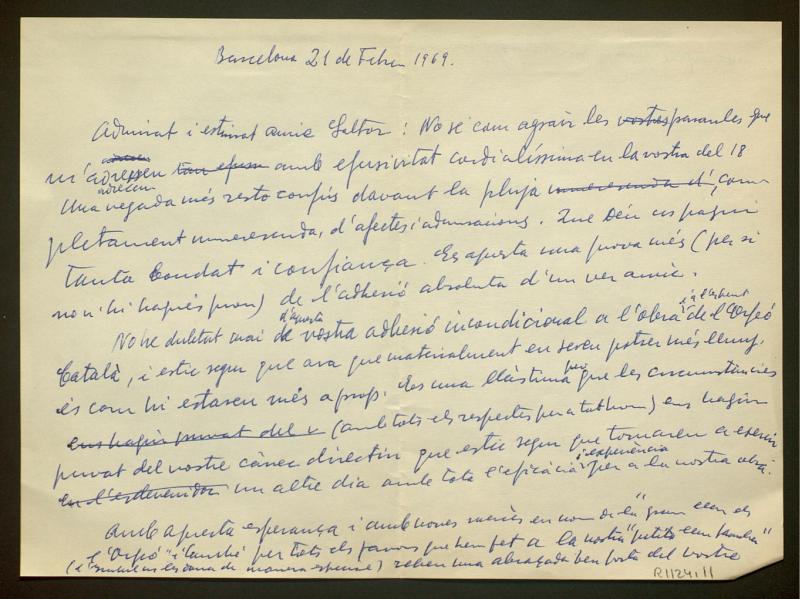 Barcelona 21 de Febrer 1969.
Admirat i estimat amic Saltor: No sé com agrair les vostres paraules que
m'adrecen tan efusi amb efusivitat cordialíssima en la vostra del 18
adrecem
Una vegada més resto confús davant la pluja immerescuda d', com-
pletament immerescuda, d'afectes i admiracions. Que Déu us pagui
tanta bondat i confiança. Es aquesta una prova més (per si
no n'hi hagués prou) de l'adhesió absoluta d'un ver amic.
No he dubtat mai de vostra adhesió incondicional a l'obra de l'Orfeó
d'aquesta
Català, i estic segur que ara que materialment en sereu potser més lluny,
és com hi estareu més aprop. Es una llàstima però que les circumstàncies
ens hagin privat del v (amb tots els respectes per a tothom) ens hagin
privat del vostre càrrec directiu que estic segur que tornareu a exercir
en l'esdevenidor un altre dia amb tota l'eficàcia i experiència per a la nostra obra.
Amb aquesta esperança i amb mercès en nom de la "gran
l'Orfeó" i també per tots els favors que hem fet a la nostra "petita família"
de manera reben una abraçada ben forta del vostre
R1124111